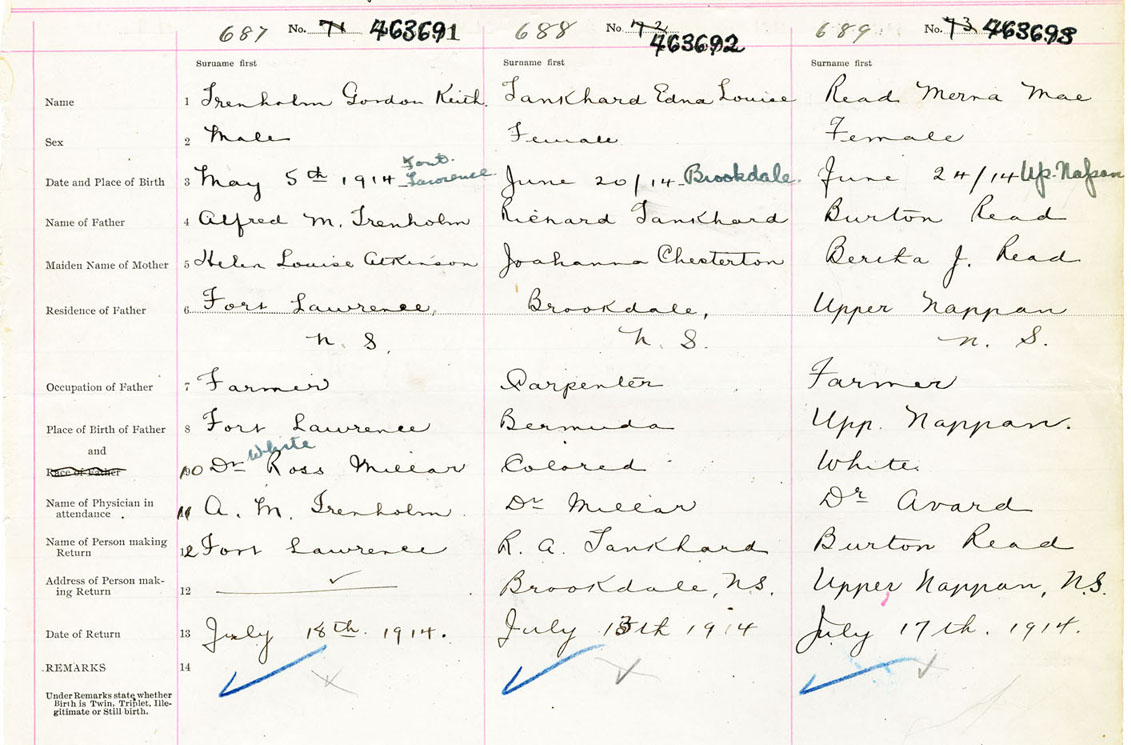 687 No. 71 463691 688 No. 72 463692 689 No. 73 463693
Surname first Surname first Surname first
Name 1 Trenholm Gordon Keith. Tankhard Edna Louise Read Merna Mae
Sex 2 Male Female Female
Date and Place of Birth 3 May 5th 1914 Fort Lawrence June 20/14 - Brookdale. June 24/14 Up. Nappan
Name of Father 4 Alfred M. Trenholm Richard Tankhard Burton Read
Maiden Name of Mother 5 Helen Louise Atkinson Joahanna Chesterton Bertha J. Read
Residence of Father 6 Fort Lawrence, Brookdale, Upper Nappan
N. S. N. S. N. S.
Occupation of Father 7 Farmer Carpenter Farmer
Place of Birth of Father 8 Fort Lawrence Bermuda Upp. Nappan.
and White
Race of Father 10 Dr Ross Millar Colored White.
Name of Physician in
attendance . 11 A. M. Trenholm. Dr Millar Dr Avard
Name of Person making
Return 12 Fort Lawrence R. A. Tankhard Burton Read
Address of Person mak-
ing Return 12 Brookdale, N.S. Upper Nappan, N.S.
Date of Return 13 July 18th. 1914. July 13th 1914 July 17th. 1914.
REMARKS 14
Under Remarks state whether
Birth is Twin, Triplet, Ille-
gitimate or Still birth.